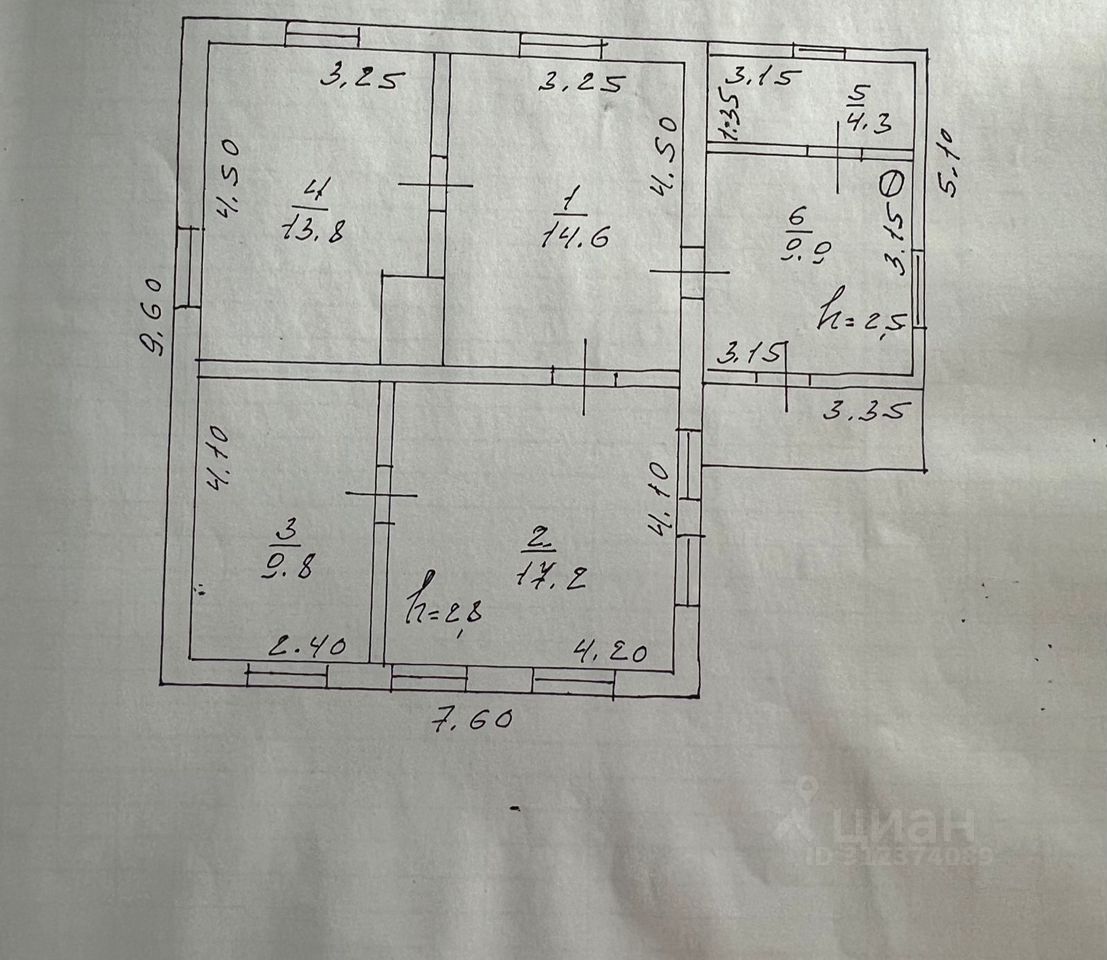 3.25
3.25
3.15
5
4.3
1.35
4.50
4.50
5.10
4
13.8
1
14.6
6
9.9
3.15
9.60
h=2,5
3.15
3.35
4.10
4.10
3
9.8
2
17.2
h=2,8
2.40
4.20
7.60
циан
ID 312374089